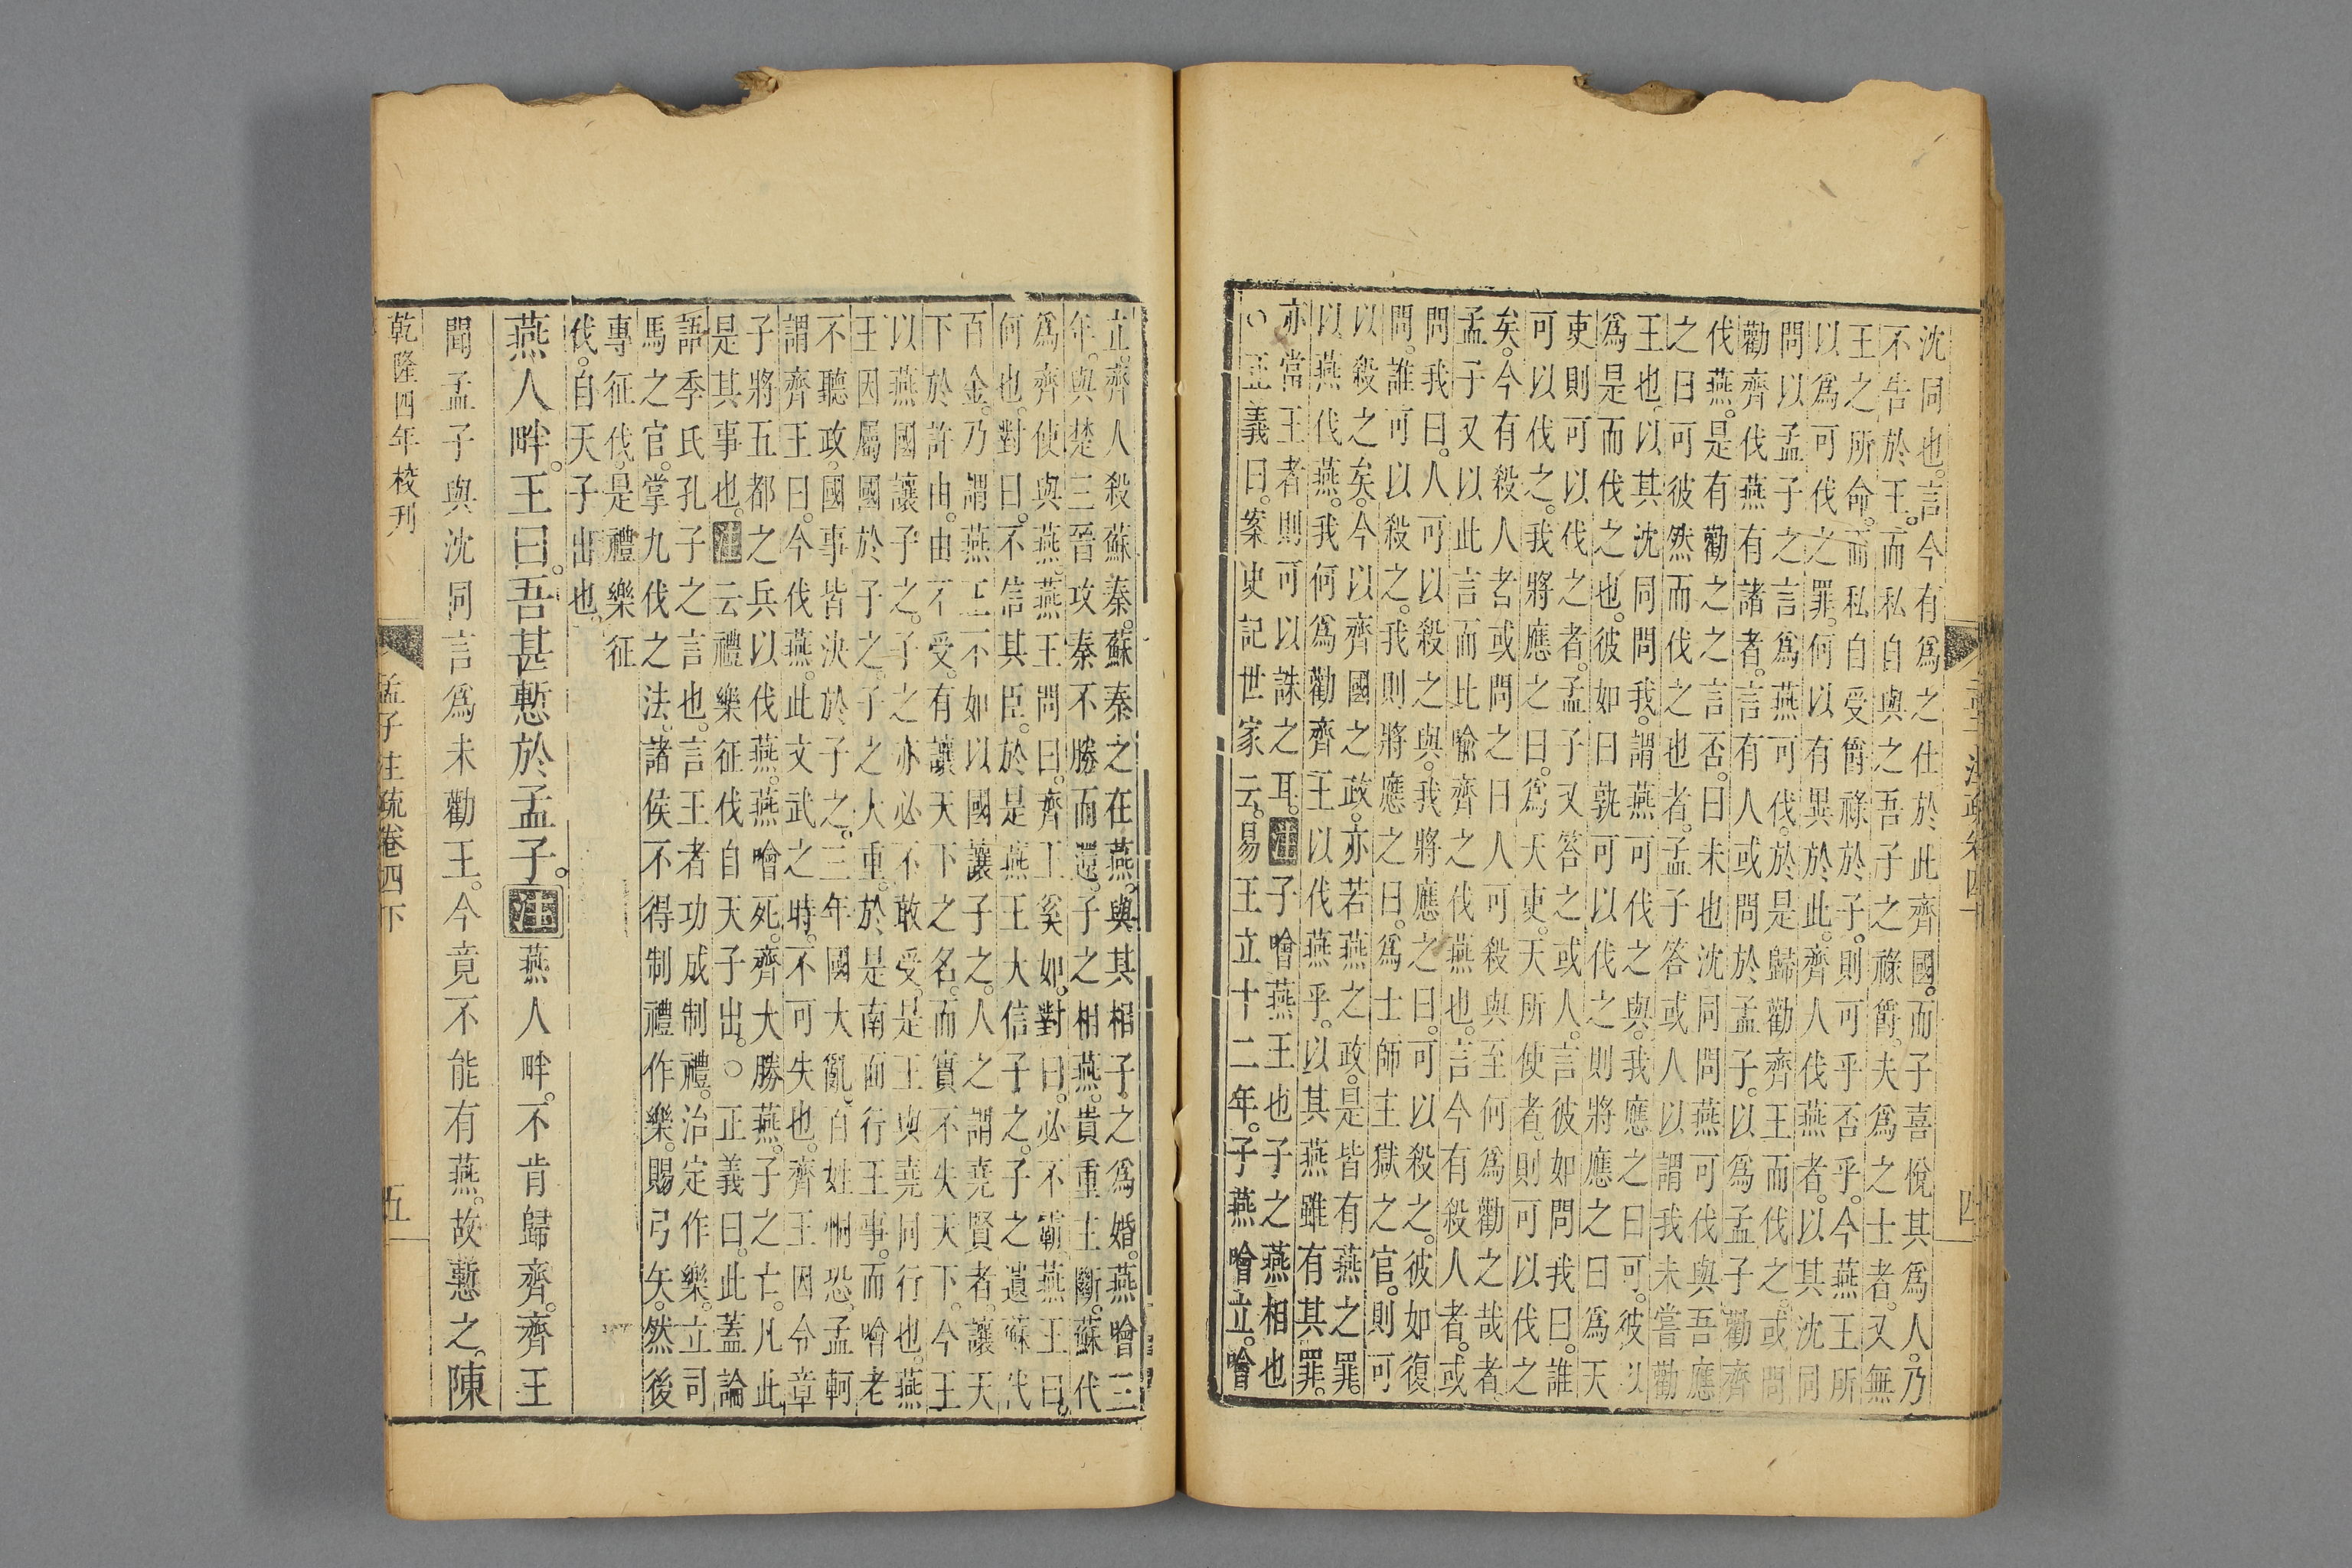 沈同也。言今有為之仕於此齊國。而子喜悅其為人。乃
不告於王。而私自與之吾子之祿爵。夫為之士者。又無
王之所命。而私自受爵祿於子。則可乎否乎。今燕王所
以為可伐之罪。何以有異於此。齊人伐燕者。以其沈同
問以孟子之言為燕可伐。於是歸勸齊王而伐之。或問
勸齊伐燕有諸者。言有人或問於孟子。以為孟子勸齊
伐燕。是有勸之之言否。曰未也沈同問燕可伐與吾應
之曰可彼然而伐之也者。孟子答或人以謂我未嘗勸
王也。以其沈同問我。謂燕可伐之與。我應之曰可。彼以
為是而伐之也。彼如曰孰可以伐之。則將應之曰為天
吏則可以伐之者。孟子又答之或人。言彼如問我曰。誰
可以伐之。我將應之曰。為天吏。天所使者。則可以伐之
矣。今有殺人者或問之曰人可殺與至何為勸之哉者
孟子又以此言而比喻齊之伐燕也。言今有殺人者。或
問我曰。人可以殺之與。我將應之曰。可以殺之。彼如復
問。誰可以殺之。我則將應之曰。為士師主獄之官。則可
以殺之矣。今以齊國之政。亦若燕之政。是皆有燕之罪。
以燕伐燕。我何為勸齊王以伐燕乎。以其燕雖有其罪。
亦當王者則可以誅之耳。注子噲燕王也子之燕相也
○正義曰。案史記世家云。易王立十二年。子燕噲立。噲
孟子注疏卷四下
四
立。齊人殺蘇秦。蘇秦之在燕。與其相子之為婚。燕噲三
年。與楚三晉攻秦不勝而還。子之相燕。貴重主斷。蘇代
為齊使與燕。燕王問曰。齊王奚如。對曰。必不霸燕王曰。
何也。對曰。不信其臣。於是燕王大信子之。子之遺蘇代
百金。乃謂燕王不如以國讓子之。人之謂堯賢者。讓天
下於許由。由不受。有讓天下之名。而實不失天下。今王
以燕國讓子之。子之亦必不敢受。是王與堯同行也。燕
王因屬國於子之。子之大重。於是南面行王事。而噲老
不聽政。國事皆決於子之。三年國大亂。百姓恫恐。孟軻
謂齊王曰。今伐燕。此文武之時。不可失也。齊王因令章
子將五都之兵以伐燕。燕噲死。齊大勝燕。子之亡。凡此
是其事也。注云禮樂征伐自天子出。○正義曰。此蓋論
語季氏孔子之言也。言王者功成制禮。治定作樂。立司
馬之官。掌九伐之法。諸侯不得制禮作樂。賜弓矢。然後
專征伐。是禮樂征
伐。自天子出也。
燕人畔。王曰。吾甚慙於孟子。注燕人畔。不肯歸齊。齊王
聞孟子與沈同言為未勸王。今竟不能有燕。故慙之。陳
乾隆四年校刊
孟子注疏卷四下
五